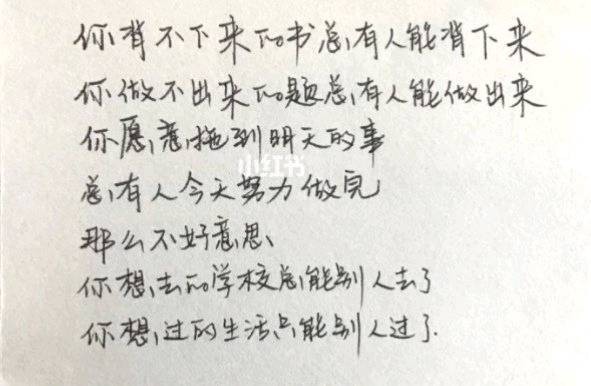 你背不下来的书总有人能背下来
你做不出来的题总有人能做出来
你愿意拖到明天的事
小红书
总有人今天努力做完
那么不好意思、
你想去的学校总能别人去了
你想过的生活只能别人过了.